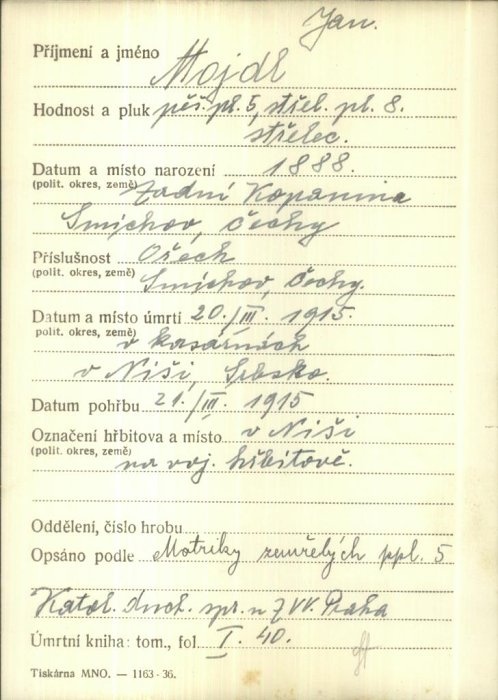 Jan.
Příjmení a jméno Mojdl
Hodnost a pluk pěš. pl. 5, střel. pl. 8.
střelec.
Datum a místo narození 1888.
(polit. okres, země) Zadní Kopanina
Smíchov, Čechy
Příslušnost Ořech
(polit. okres, země) Smíchov, Čechy.
Datum a místo úmrtí 20./III. 1915.
polit. okres, země) v kasárnách
v Niši, Srbsko.
Datum pohřbu 21./III. 1915
Označení hřbitova a místo v Niši
(polit. okres, země) na voj. hřbitově.
Oddělení, číslo hrobu
Opsáno podle Matriky zemřelých ppl. 5
Katol. duch. spr. u ZVV. Praha
Úmrtní kniha: tom., fol. I. 40.
Tiskárna MNO. — 1163-36.